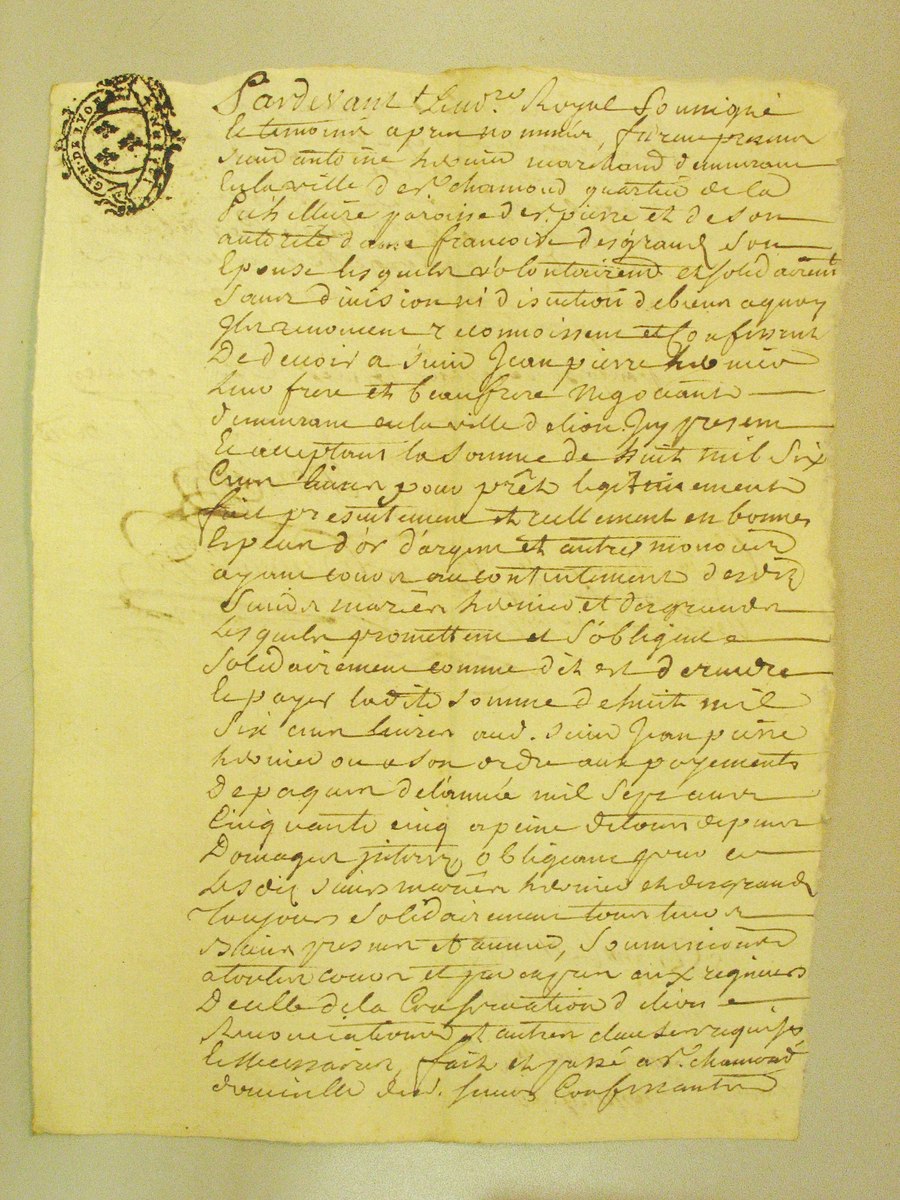 GEN DE LYON
Pardevant Le no.re Royal Soussigné
le temoins apres nommés, furent presens
sieur antoine hervier marchand demeurant
En la ville de s.t chamond quartier de la
paroisse de s.t pierre et de son
autorité dame francoise desgrand son
Epouse lesquels volontairemt et solidairemt
Sans division ni discution de biens a quoy
Ils renoncent reconnoissent et Confessent
De devoir a sieur Jean pierre hervier
Leur frere et beaufrere negociant
demeurant en la ville de lion Icy present
Et acceptant la somme de huit mil six
Cens livres pour prêt legitimement
fait presentement et reellement en bonnes
Especes d'or d'argent et autres monoies
ayant cours au contentement desdits
Sieurs mariés hervier et desgrand
Lesquels promettent et s'obligent
Solidairement comme dit est de rendre
le payer ladite somme de huit mil
Six cens livres aud. sieur Jean pierre
hervier ou a son ordre aux payements
De paques de l'année mil sept cens
Cinquante cinq a peine de tous depens
Domages interets, obligeant pour ce
Lesdits sieurs mariés hervier et desgrand
Toujours solidairement tous leurs
Biens presens et avenir, Soumissions
a toutes cours et par expres aux rigueurs
De celle de la Conservation de lion
Renonciations et autres clauses requises
le Necessaires, fait et passé a s.t chamond
domicille desd. sieurs Confessants